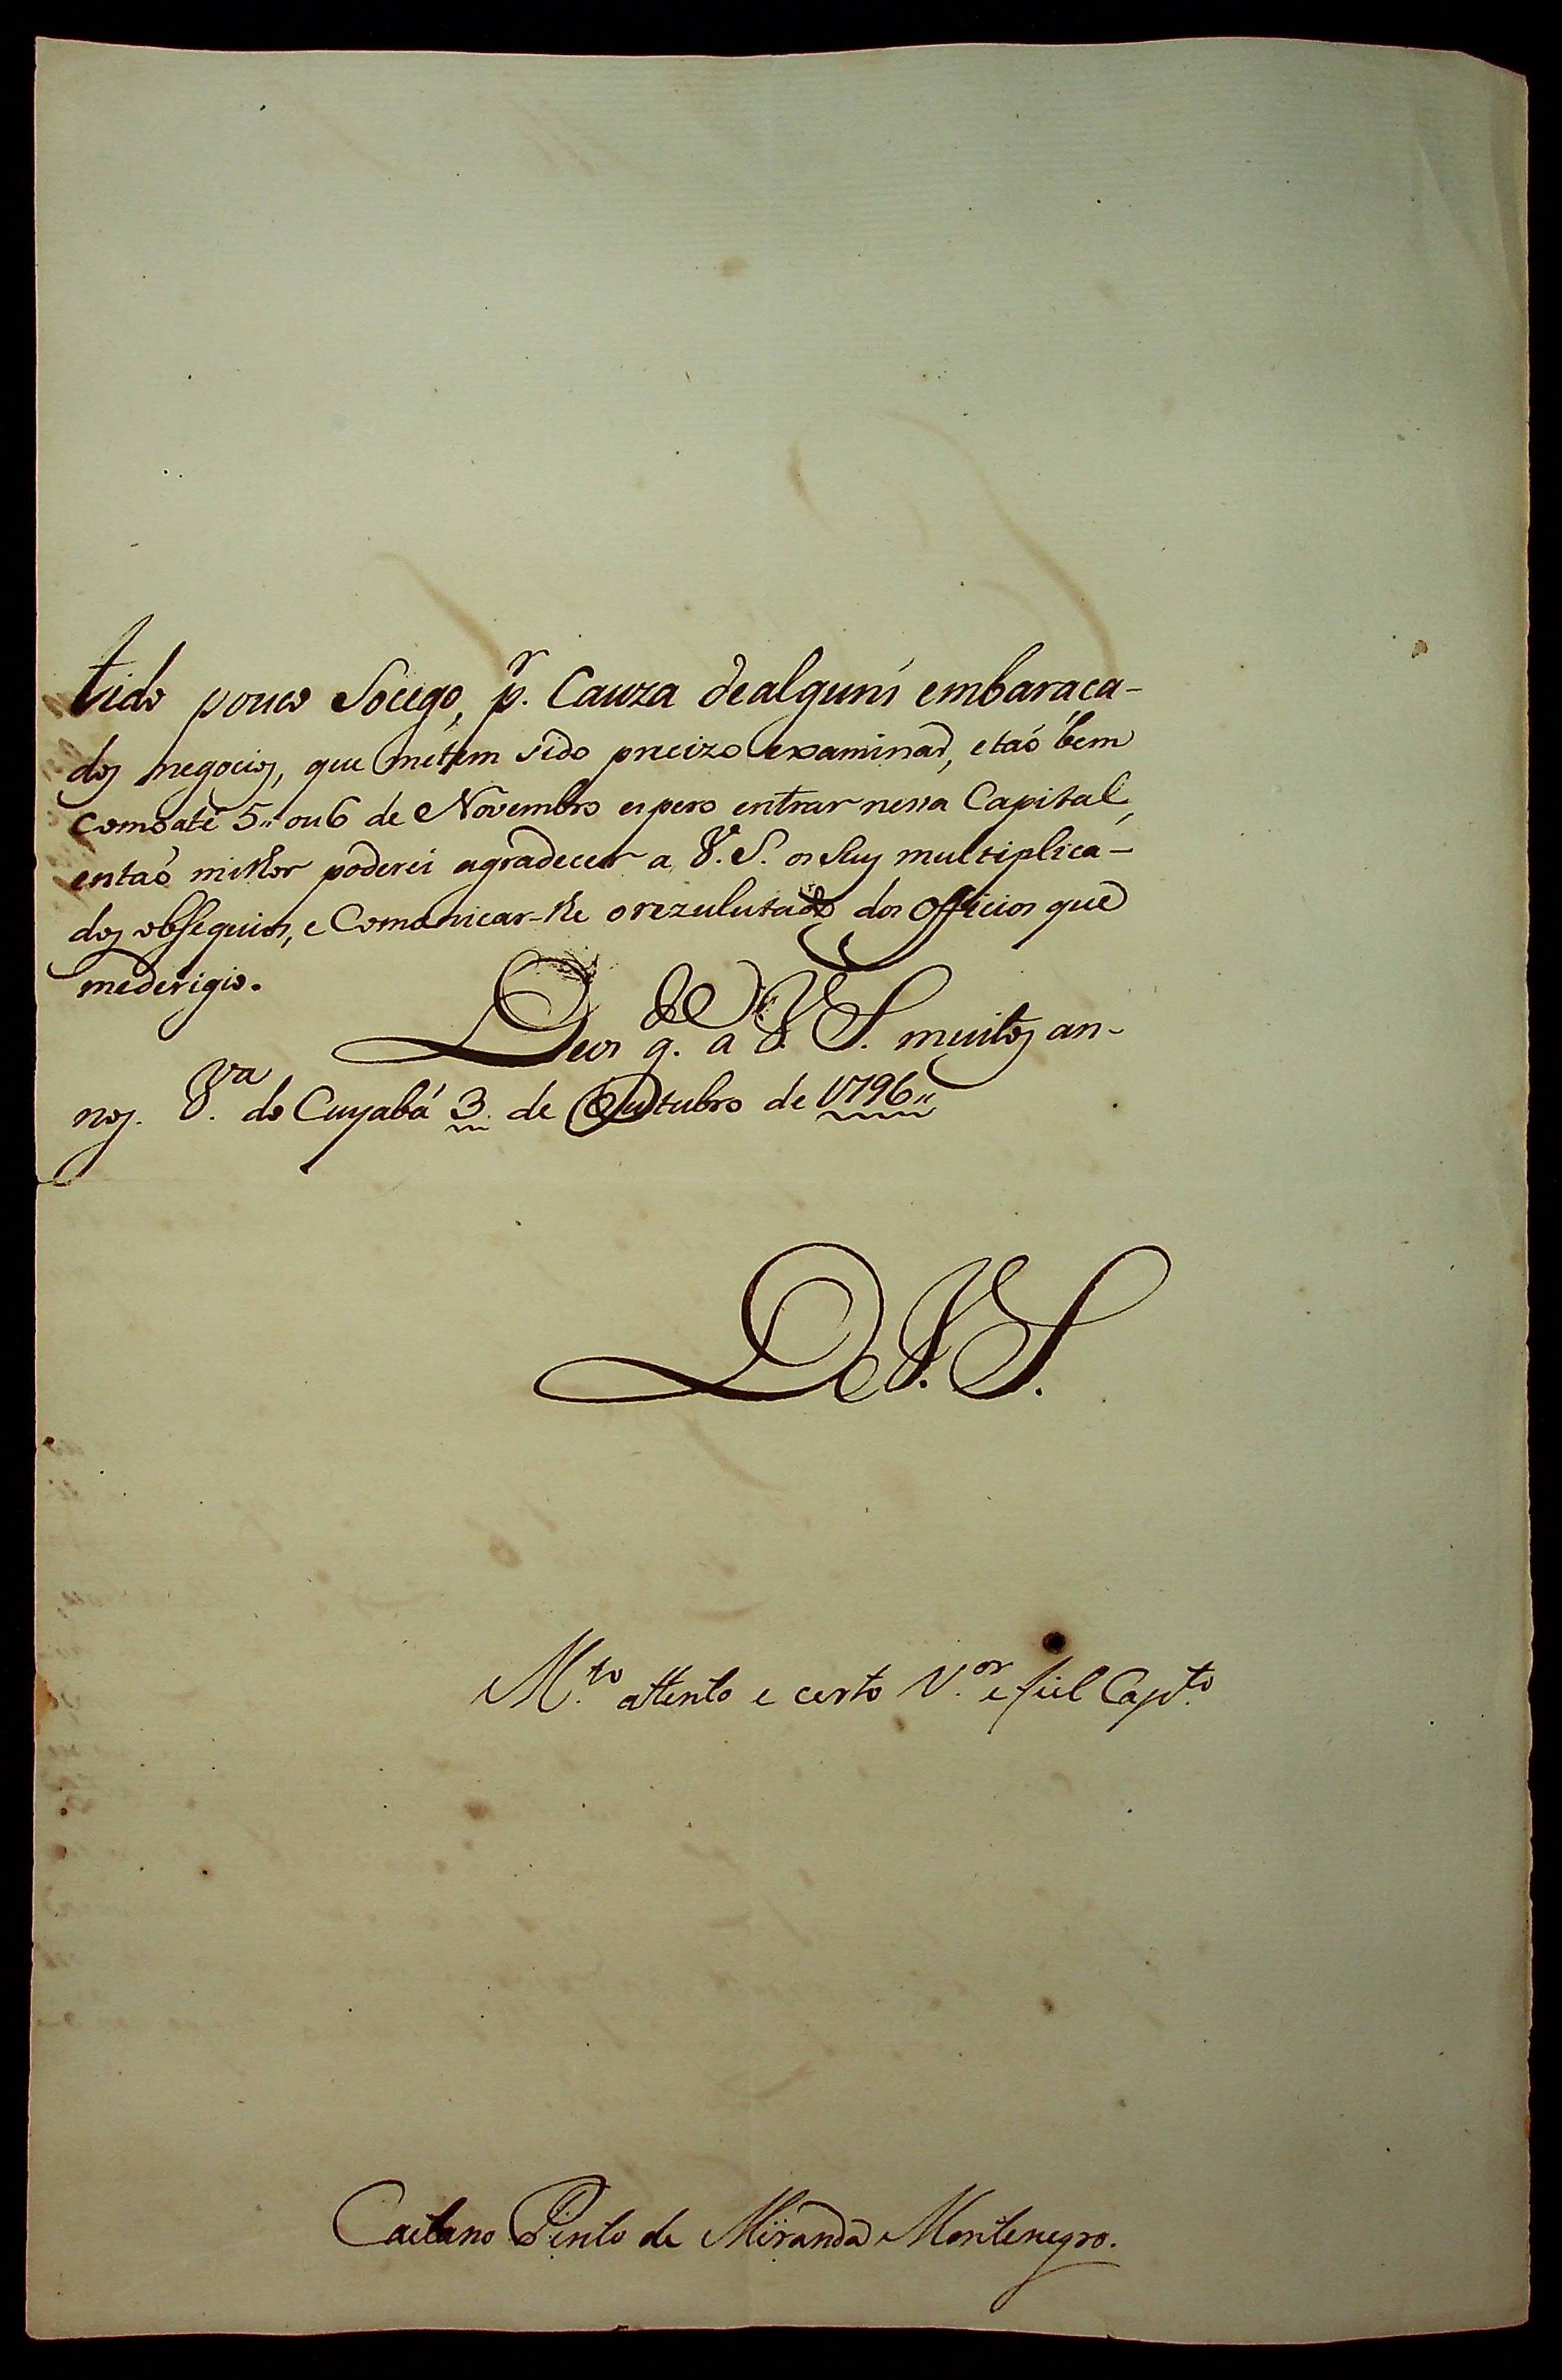 tido pouco Socego, p.r Cauza dealguns embaraca-
dos negocios, que metem sido precizo examinar, etaõ bem
comoaté 5,, ou 6 de Novembro espero entrar nessa Capital,
entaõ milhor poderei agradecer a V. S. os Seus multiplica-
dos obsequios, e Comonicar-lhe orezulutado dos Officios que
mederigio.
Deos g.de a V. S. muitos an-
nos. V.a do Cuyabá 3. de Outubro de 1796,,
De V. S.
M.to attento e certo V.or e fiel Capt.o
Caetano Pinto de Miranda Montenegro.